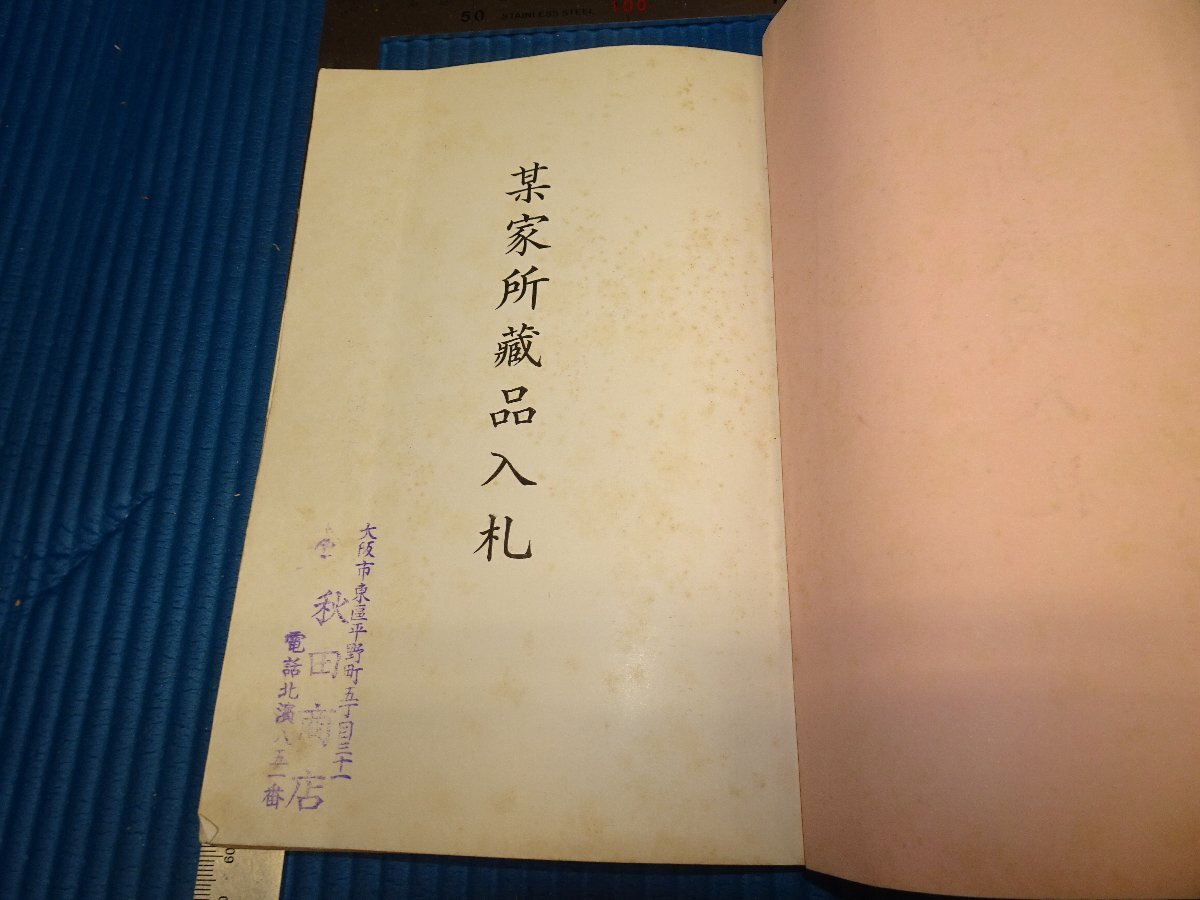 某家所藏品入札
大阪市東區平野町五丁目三十一
秋田商店
電話北濱八五一番
50 STAINLESS STEEL 100
60